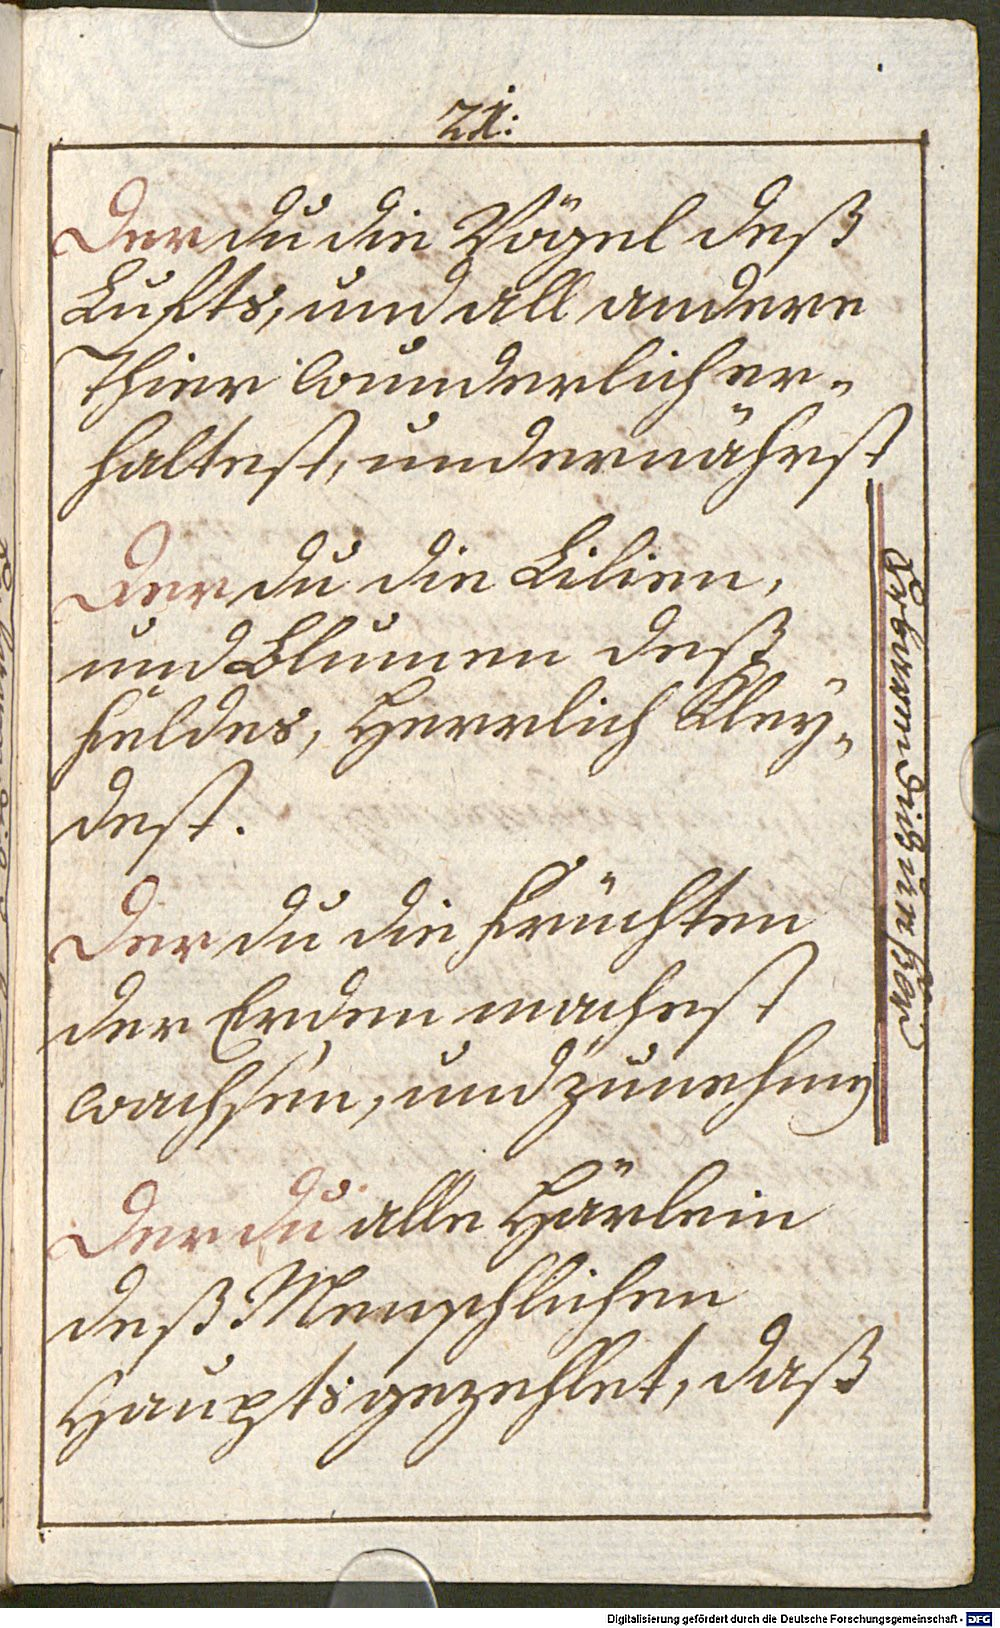 21:
Der du die Vögel deß
Lufts, und all andere
Thier wunderlich er-
haltest, und ernährst
Der du die Lilien,
und Blumen deß
Feldes, Herrlich Kley-
dest.
Der du die Früchten
der Erden machest
wachsen, und zunehmen
Der du alle Härlein
deß Menschlichen
Haupts gezehlet, daß
Erbarm dich unßer
Digitalisierung gefördert durch die Deutsche Forschungsgemeinschaft - DFG